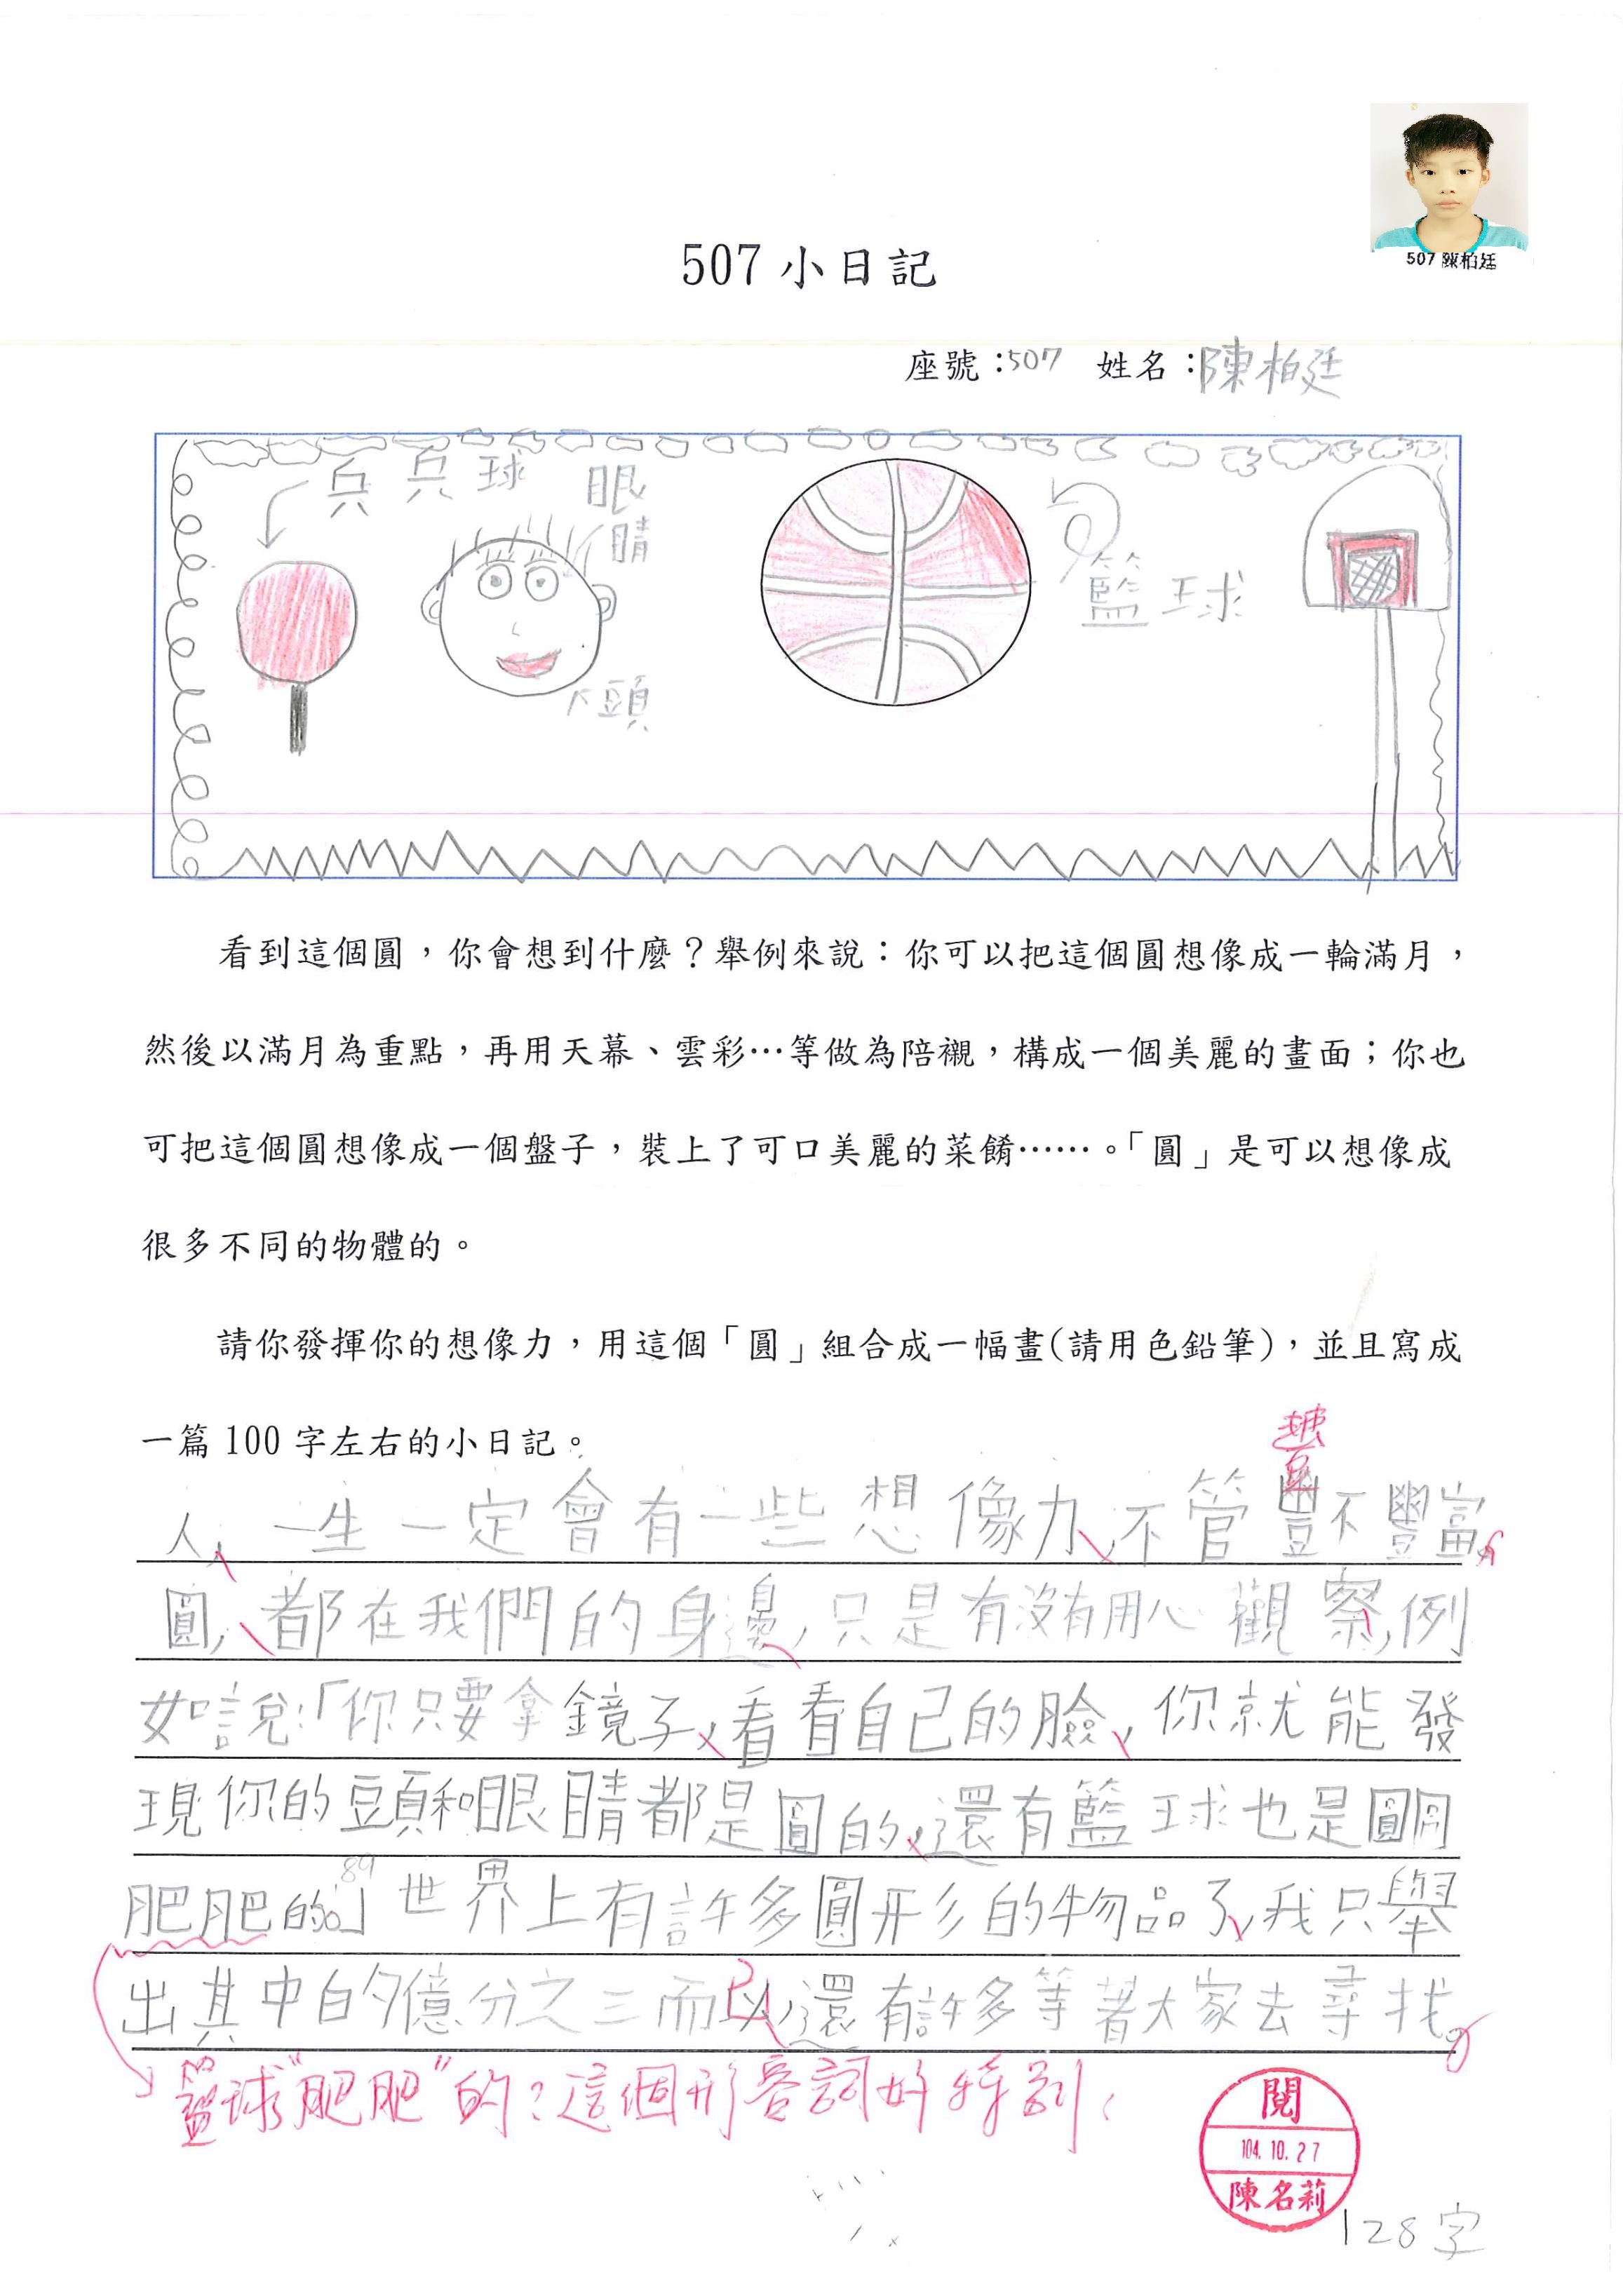 507 陳柏廷
507 小日記
座號：507 姓名：陳柏廷
兵 兵 球
眼
睛
籃 球
頭
看到這個圓，你會想到什麼？舉例來說：你可以把這個圓想像成一輪滿月，
然後以滿月為重點，再用天幕、雲彩…等做為陪襯，構成一個美麗的畫面；你也
可把這個圓想像成一個盤子，裝上了可口美麗的菜餚……。「圓」是可以想像成
很多不同的物體的。
請你發揮你的想像力，用這個「圓」組合成一幅畫(請用色鉛筆)，並且寫成
一篇 100 字左右的小日記。
人，一生一定會有一些想像力，不管豐不豐富，
圓，都在我們的身邊，只是有沒有用心觀察，例
如說：「你只要拿鏡子，看看自己的臉，你就能發
現你的頭和眼睛都是圓的，還有籃球也是圓
肥肥的。」世界上有許多圓形的物品了，我只舉
89
出其中的億分之三而以，還有許多等著大家去尋找。
已
籃球"肥肥"的？這個形容詞好特別！
閱
104.10.27
陳名莉
128字